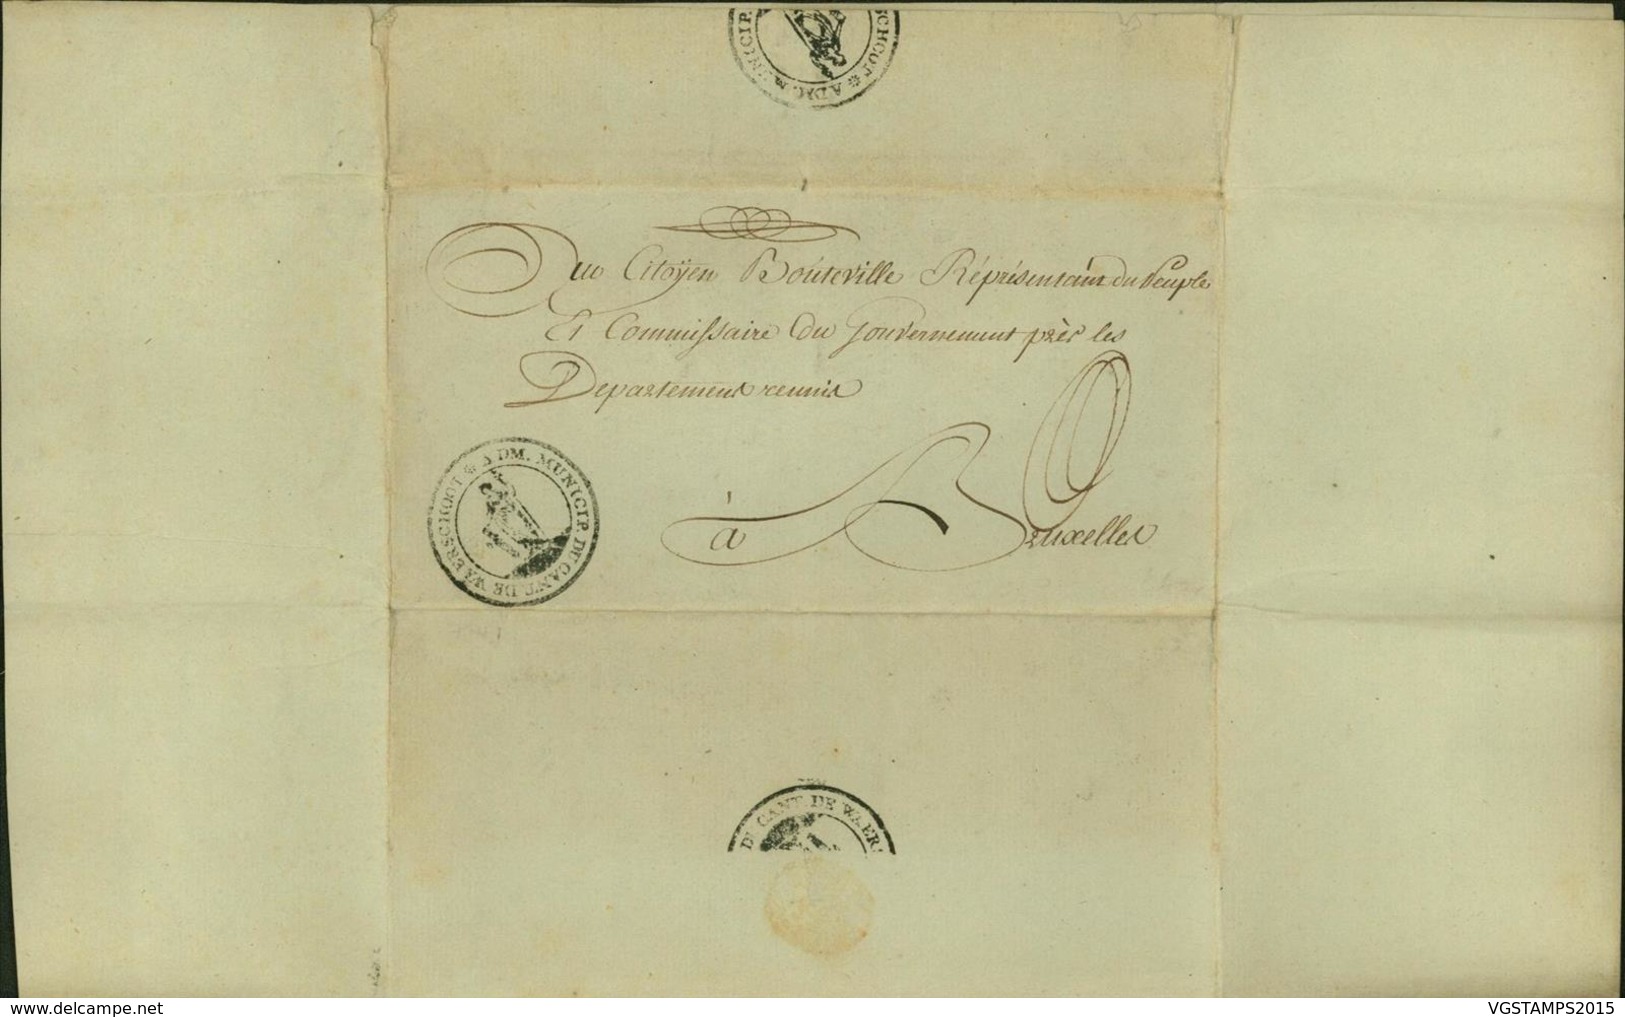 ADM. MUNICIP. SCHOOT
Au Citoÿen Bouteville Réprésentant du Peuple
Et Commissaire du Gouvernement près les
Departemens reunis
ADM. MUNICIP. DU CANT. DE WAERSCHOOT
à Bruxelles
DU CANT. DE WAERS
www.delcampe.net
VGSTAMPS2015